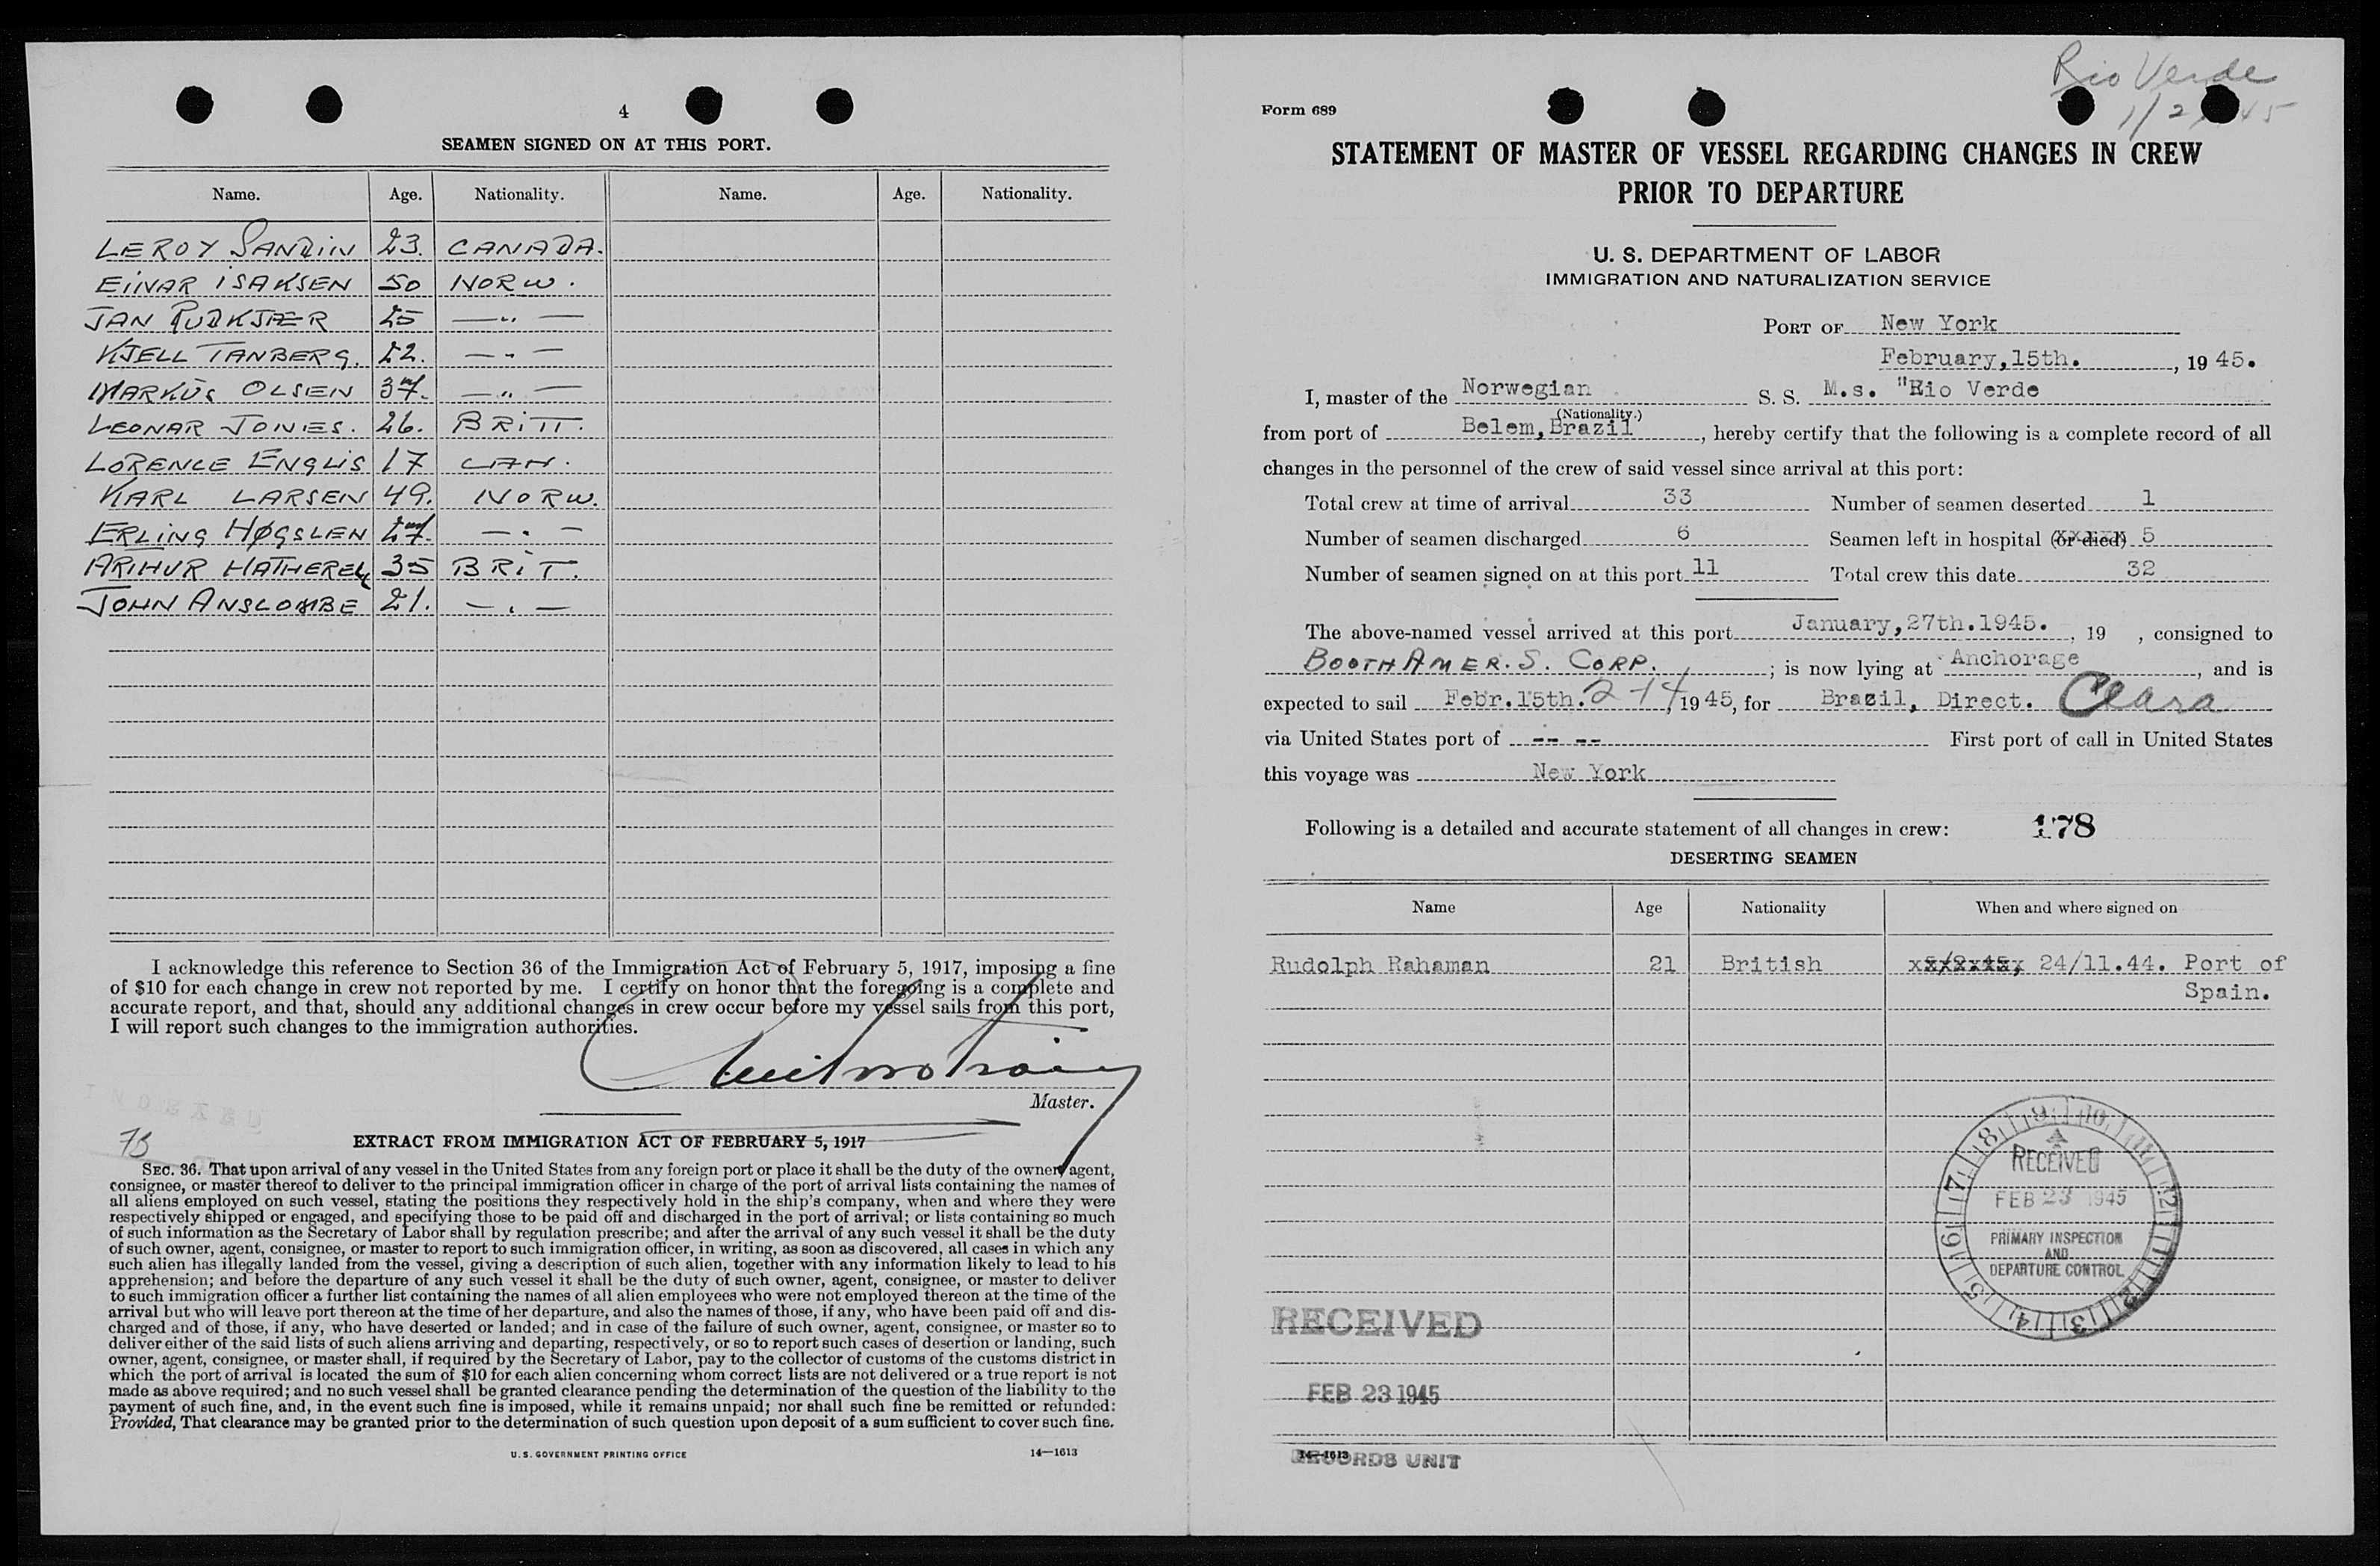 4
SEAMEN SIGNED ON AT THIS PORT.
Name. Age. Nationality. Name. Age. Nationality.
LEROY SANDIN 23. CANADA.
EINAR ISAKSEN 50 NORW.
JAN RUDKJÆR 25 —〃—
KJELL TANBERG. 22. —〃—
MARKUS OLSEN 37. —〃—
LEONAR JONES. 26. BRITT.
LORENCE ENGLIS 17 CAN.
KARL LARSEN 49. NORW.
ERLING HØGSLEN 27. —〃—
ARTHUR HATHERELL 35 BRIT.
JOHN ANSCOMBE 21. —〃—
I acknowledge this reference to Section 36 of the Immigration Act of February 5, 1917, imposing a fine
of $10 for each change in crew not reported by me. I certify on honor that the foregoing is a complete and
accurate report, and that, should any additional changes in crew occur before my vessel sails from this port,
I will report such changes to the immigration authorities.
Master.
INDEXED
EXTRACT FROM IMMIGRATION ACT OF FEBRUARY 5, 1917
SEC. 36. That upon arrival of any vessel in the United States from any foreign port or place it shall be the duty of the owner, agent,
consignee, or master thereof to deliver to the principal immigration officer in charge of the port of arrival lists containing the names of
all aliens employed on such vessel, stating the positions they respectively hold in the ship's company, when and where they were
respectively shipped or engaged, and specifying those to be paid off and discharged in the port of arrival; or lists containing so much
of such information as the Secretary of Labor shall by regulation prescribe; and after the arrival of any such vessel it shall be the duty
of such owner, agent, consignee, or master to report to such immigration officer, in writing, as soon as discovered, all cases in which any
such alien has illegally landed from the vessel, giving a description of such alien, together with any information likely to lead to his
apprehension; and before the departure of any such vessel it shall be the duty of such owner, agent, consignee, or master to deliver
to such immigration officer a further list containing the names of all alien employees who were not employed thereon at the time of the
arrival but who will leave port thereon at the time of her departure, and also the names of those, if any, who have been paid off and dis-
charged and of those, if any, who have deserted or landed; and in case of the failure of such owner, agent, consignee, or master so to
deliver either of the said lists of such aliens arriving and departing, respectively, or so to report such cases of desertion or landing, such
owner, agent, consignee, or master shall, if required by the Secretary of Labor, pay to the collector of customs of the customs district in
which the port of arrival is located the sum of $10 for each alien concerning whom correct lists are not delivered or a true report is not
made as above required; and no such vessel shall be granted clearance pending the determination of the question of the liability to the
payment of such fine, and, in the event such fine is imposed, while it remains unpaid; nor shall such fine be remitted or refunded:
Provided, That clearance may be granted prior to the determination of such question upon deposit of a sum sufficient to cover such fine.
U. S. GOVERNMENT PRINTING OFFICE 14—1613
Rio Verde
Form 689
STATEMENT OF MASTER OF VESSEL REGARDING CHANGES IN CREW
PRIOR TO DEPARTURE
U. S. DEPARTMENT OF LABOR
IMMIGRATION AND NATURALIZATION SERVICE
PORT OF New York
February,15th. , 19 45.
I, master of the Norwegian S. S. M.s. "Rio Verde
(Nationality.)
from port of Belem,Brazil , hereby certify that the following is a complete record of all
changes in the personnel of the crew of said vessel since arrival at this port:
Total crew at time of arrival 33 Number of seamen deserted 1
Number of seamen discharged 6 Seamen left in hospital (or died) 5
Number of seamen signed on at this port 11 Total crew this date 32
The above-named vessel arrived at this port January,27th.1945. , 19 , consigned to
BOOTH AMER. S. CORP. ; is now lying at Anchorage , and is
expected to sail Febr.15th. 2-14, 19 45, for Brazil, Direct. Ceara
via United States port of -- -- First port of call in United States
this voyage was New York
Following is a detailed and accurate statement of all changes in crew: 178
DESERTING SEAMEN
Name Age Nationality When and where signed on
Rudolph Rahaman 21 British 24/11.44. Port of
Spain.
9 10 11 12 1 2 3 4 5 6 7 8
RECEIVED
FEB 23 1945
PRIMARY INSPECTION
AND
DEPARTURE CONTROL
RECEIVED
FEB 23 1945
14—1613
RECORDS UNIT